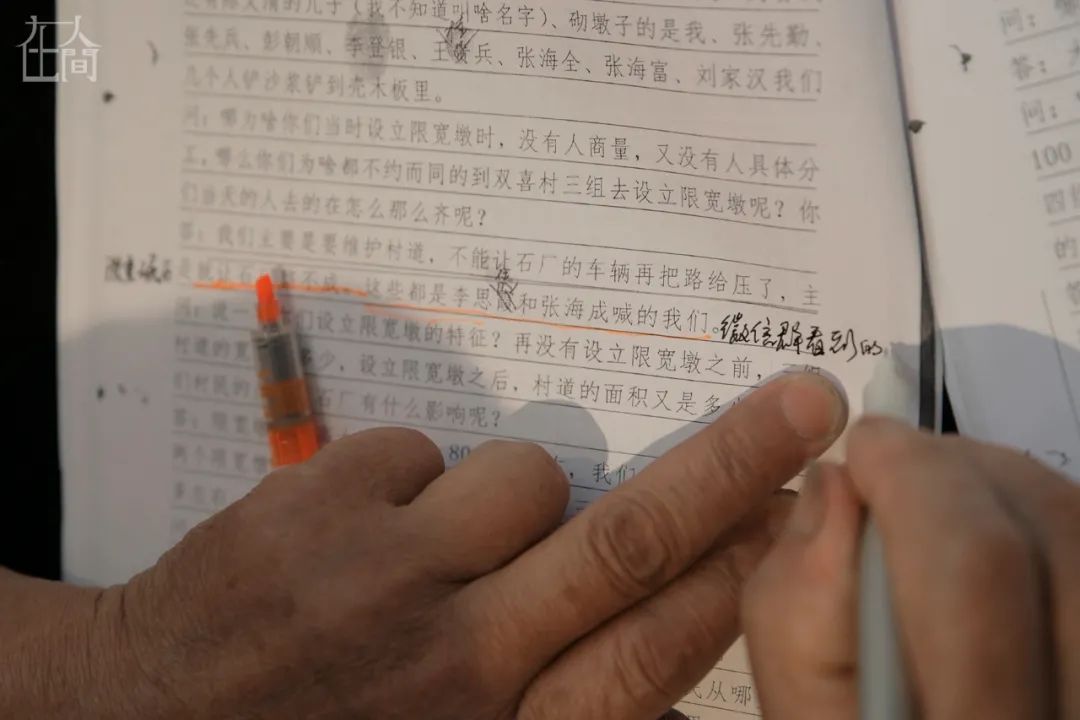 在人间
的儿子（我不知道叫啥名字）、砌墩子的是我、张先勤、
张先兵、彭朝顺、李登银、王贵兵、张海全、张海富、刘家汉我们
几个人铲沙浆铲到壳木板里。
问：哪为啥你们当时设立限宽墩时，没有人商量，又没有人具体分
工，哪么你们为啥都不约而同的到双喜村三组去设立限宽墩呢？你
们当天的人去的在怎么那么齐呢？
答：我们主要是要维护村道，不能让石厂的车辆再把路给压了，主
是就让石 不成。这些都是李思 和张海成喊的我们。微信群看到的
问：说一 们设立限宽墩的特征？再没有设立限宽墩之前，
村道的宽 少，设立限宽墩之后，村道的面积又是多
们村民的 石厂有什么影响呢？
答：限宽 80 ，我们
两个限宽
民从哪
问：
答：
问：
100
四组
的
答